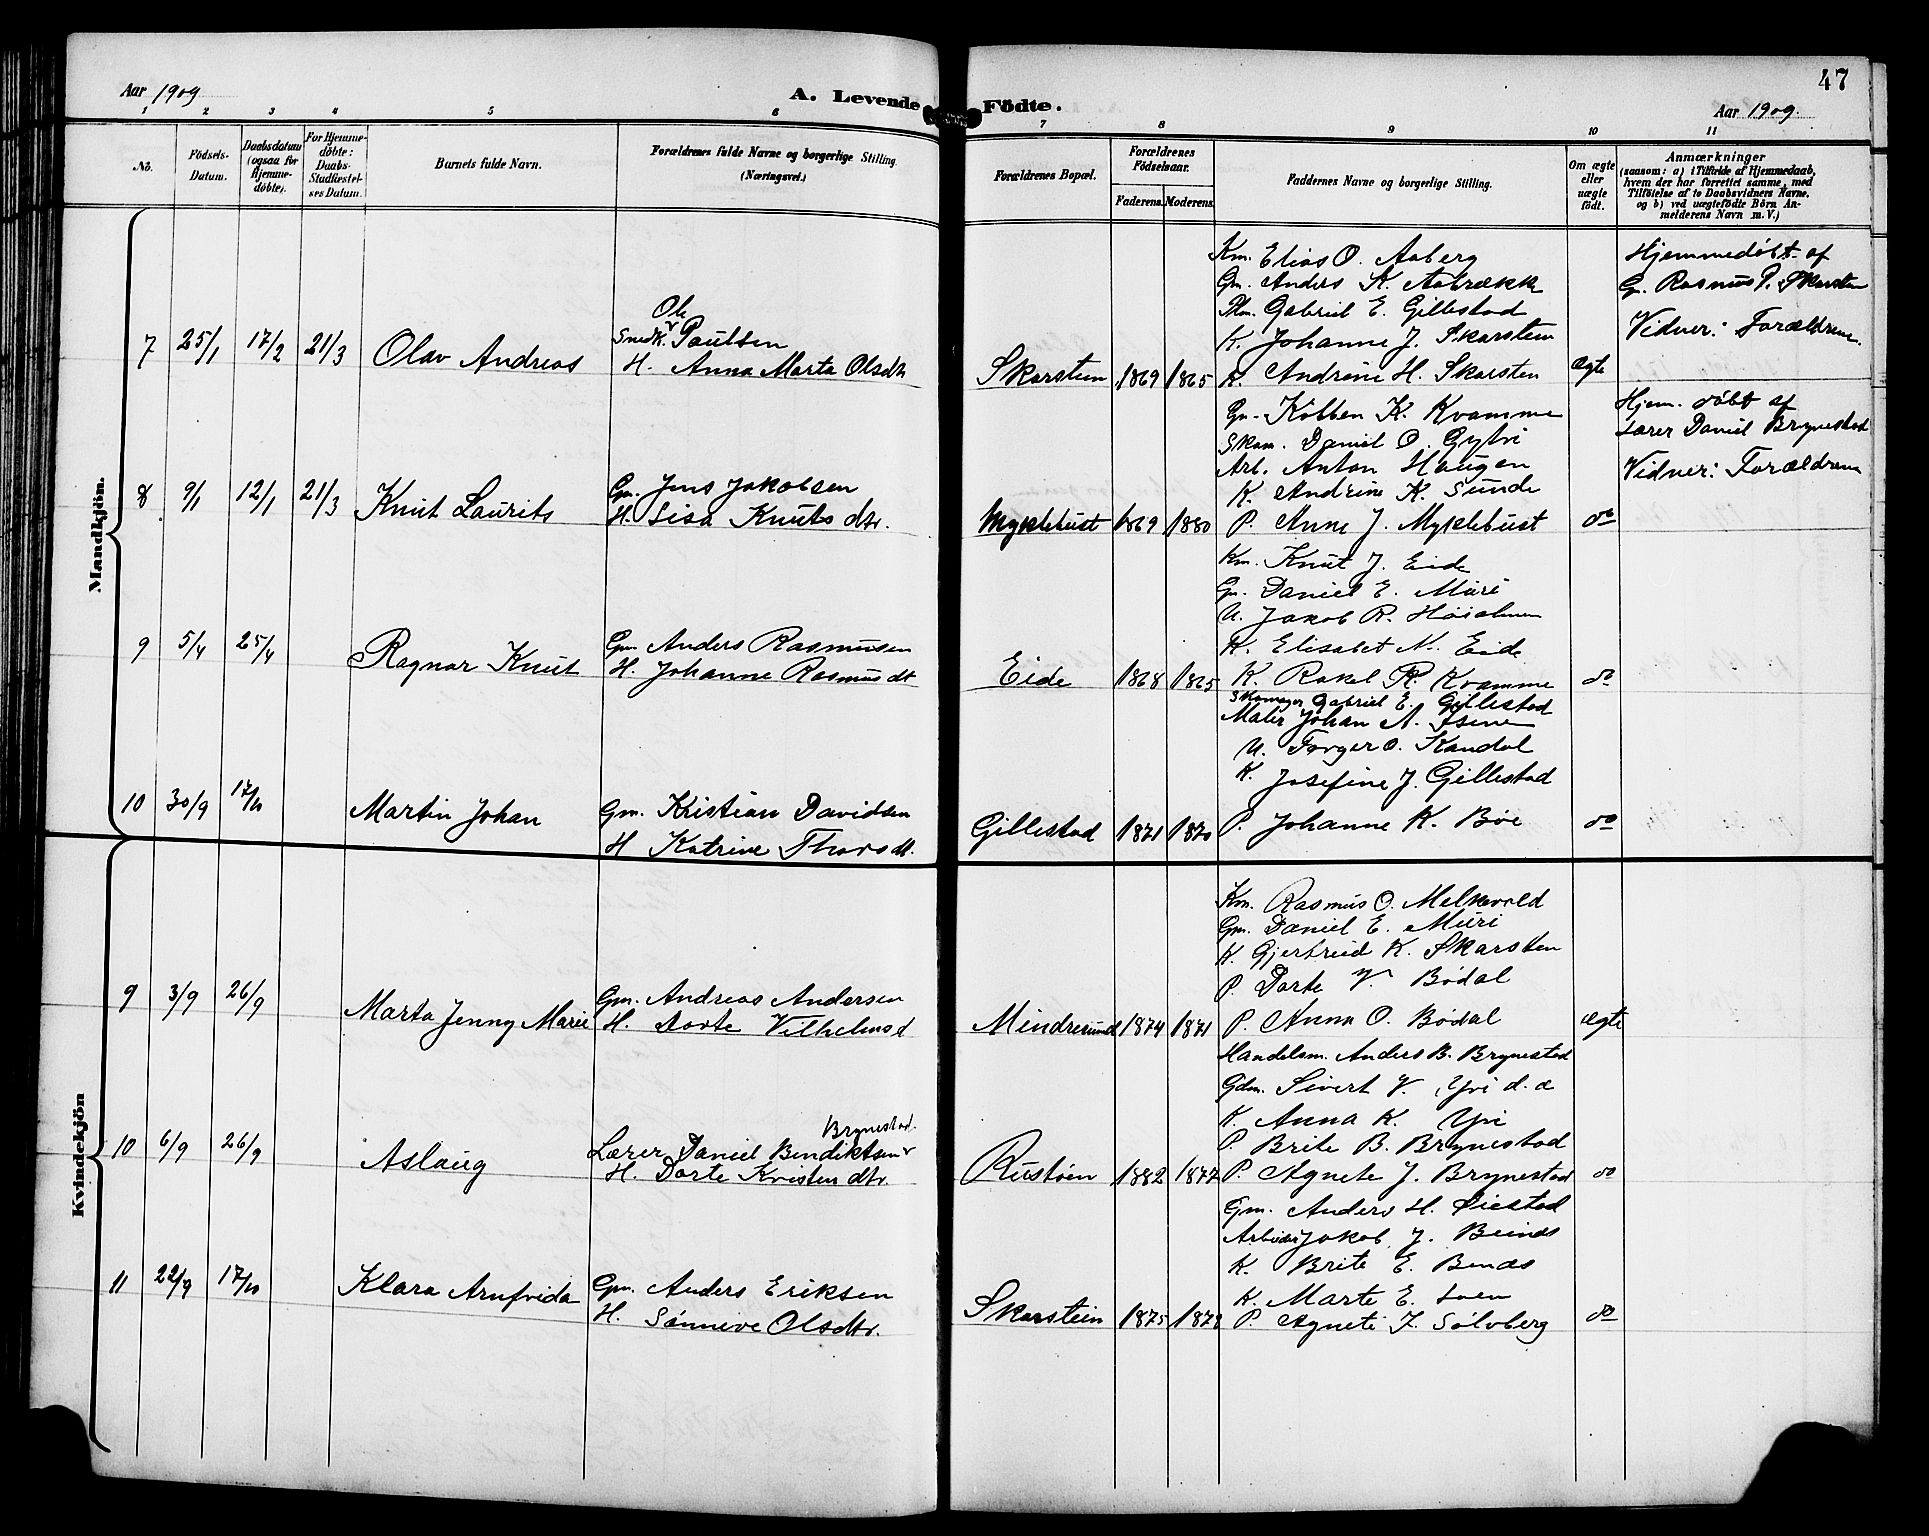 47
Aar 1909
A. Levende Födte.
Aar 1909.
1 2 3 4 5 6 7 8 9 10 11
No.
Födsels-
Datum.
Daabsdatum
(ogsaa for
Hjemme-
döbte).
For Hjemme-
döbte:
Daabs-
Stadfæstel-
ses Datum.
Barnets fulde Navn.
Forældrenes fulde Navne og borgerlige Stilling.
(Næringsvei.)
Forældrenes Bopæl.
Forældrenes
Födselsaar.
Faderens. Moderens.
Faddernes Navne og borgerlige Stilling.
Om ægte
eller
uægte
födt.
Anmærkninger
(saasom: a) i Tilfælde af Hjemmedaab,
hvem der har forrettet samme, med
Tilföielse af to Daabsvidners Navne.
og b) ved uægtefödte Börn An-
melderens Navn m. V.)
Mandkjön.
7 25/1 17/2 21/3 Olav Andreas
Ole
Snedk. Paulsen
H. Anna Marta Olsdtr
Skarstein 1869 1865
Km. Elias O. Aaberg
Gm. Anders K. Aabrække
Pm. Gabriel E. Gillestad
K. Johanne J. Skarstein
K. Andrine H. Skarsten
ægte
Hjemmedøbt af
G. Rasmus P. Skarsten
Vidner: Forældrene.
8 9/1 12/1 21/3 Knut Laurits
Gm. Jens Jakobsen
H. Sisa Knuts dtr.
Myklebust 1869 1880
Gm. Kolben K. Kvamme
Skom. Daniel O. Gytri
Arb. Anton Haugen
K. Andrine K. Sunde
P. Anne J. Myklebust
do
Hjem. døbt af
Lærer Daniel Brynestad
Vidner: Forældrene
9 5/4 25/4 Ragnar Knut
Gm Anders Rasmusen
H. Johanne Rasmus dt
Eide 1868 1865
Km. Knut J. Eide
Gm. Daniel E. Muri
U. Jakob R. Høialmen
K. Elisabet N. Eide
K. Rakel R. Kvamme
do
10 30/9 17/10 Martin Johan
Gm. Kristian Davidsen
H Katrine Thorsdt.
Gillestad 1871 1870
Skomager Gabriel E. Gillestad
Maler Johan A. Isene
U. Torger O. Kandal
K. Josefine J. Gillestad
P. Johanne K. Bøe
do
Kvindekjön
9 3/9 26/9 Marta Jenny Marie
Gm. Andreas Andersen
H. Dorte Vilhelmsd
Mindresund 1874 1871
Km. Rasmus O. Melkevold
Gm. Daniel E. Muri
K. Gjertrud K. Skarsten
P. Dorte V. Bødal
P. Anna O. Bødal
ægte
10 6/9 26/9 Aslaug
Brynestad.
Lærer Daniel Bendiktsen
H. Dorte Kristen dtr.
Rustøen 1882 1877
Handelsm. Anders B. Brynestad
Gdm. Sivert V. Yri d. æ
K. Anna K. Yri
P. Brite B. Brynestad
P. Agnete J. Brynestad
do
11 22/9 17/10 Klara Arnfrida
Gm. Anders Eriksen
H. Sønneve Olsdtr.
Skarstein 1875 1879
Gm. Anders H. Øiestad
Arbeider Jakob J. Beinds
K. Brite E. Bends
K. Marte E. Loen
P. Agnete J. Sølvberg
do